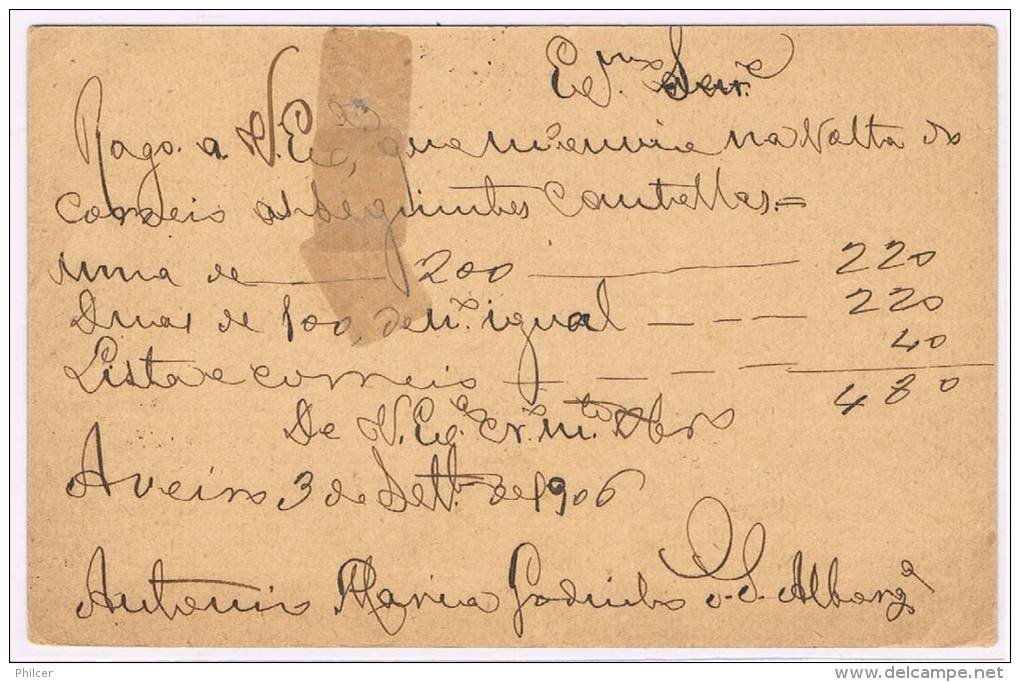 Ex.mo Senr.
Rogo a V. Exa, que m'envie na volta do
correio as seguintes cautellas =
uma de ——— 200 ——— 220
Duas de 100, de n.o igual — — — 220
Lista e correio — — — 40
480
De V. Exa cr. m.to Obro
Aveiro 3 de Sett.bro de 1906
Antonio Maria Godinho
Philcer
www.delcampe.net